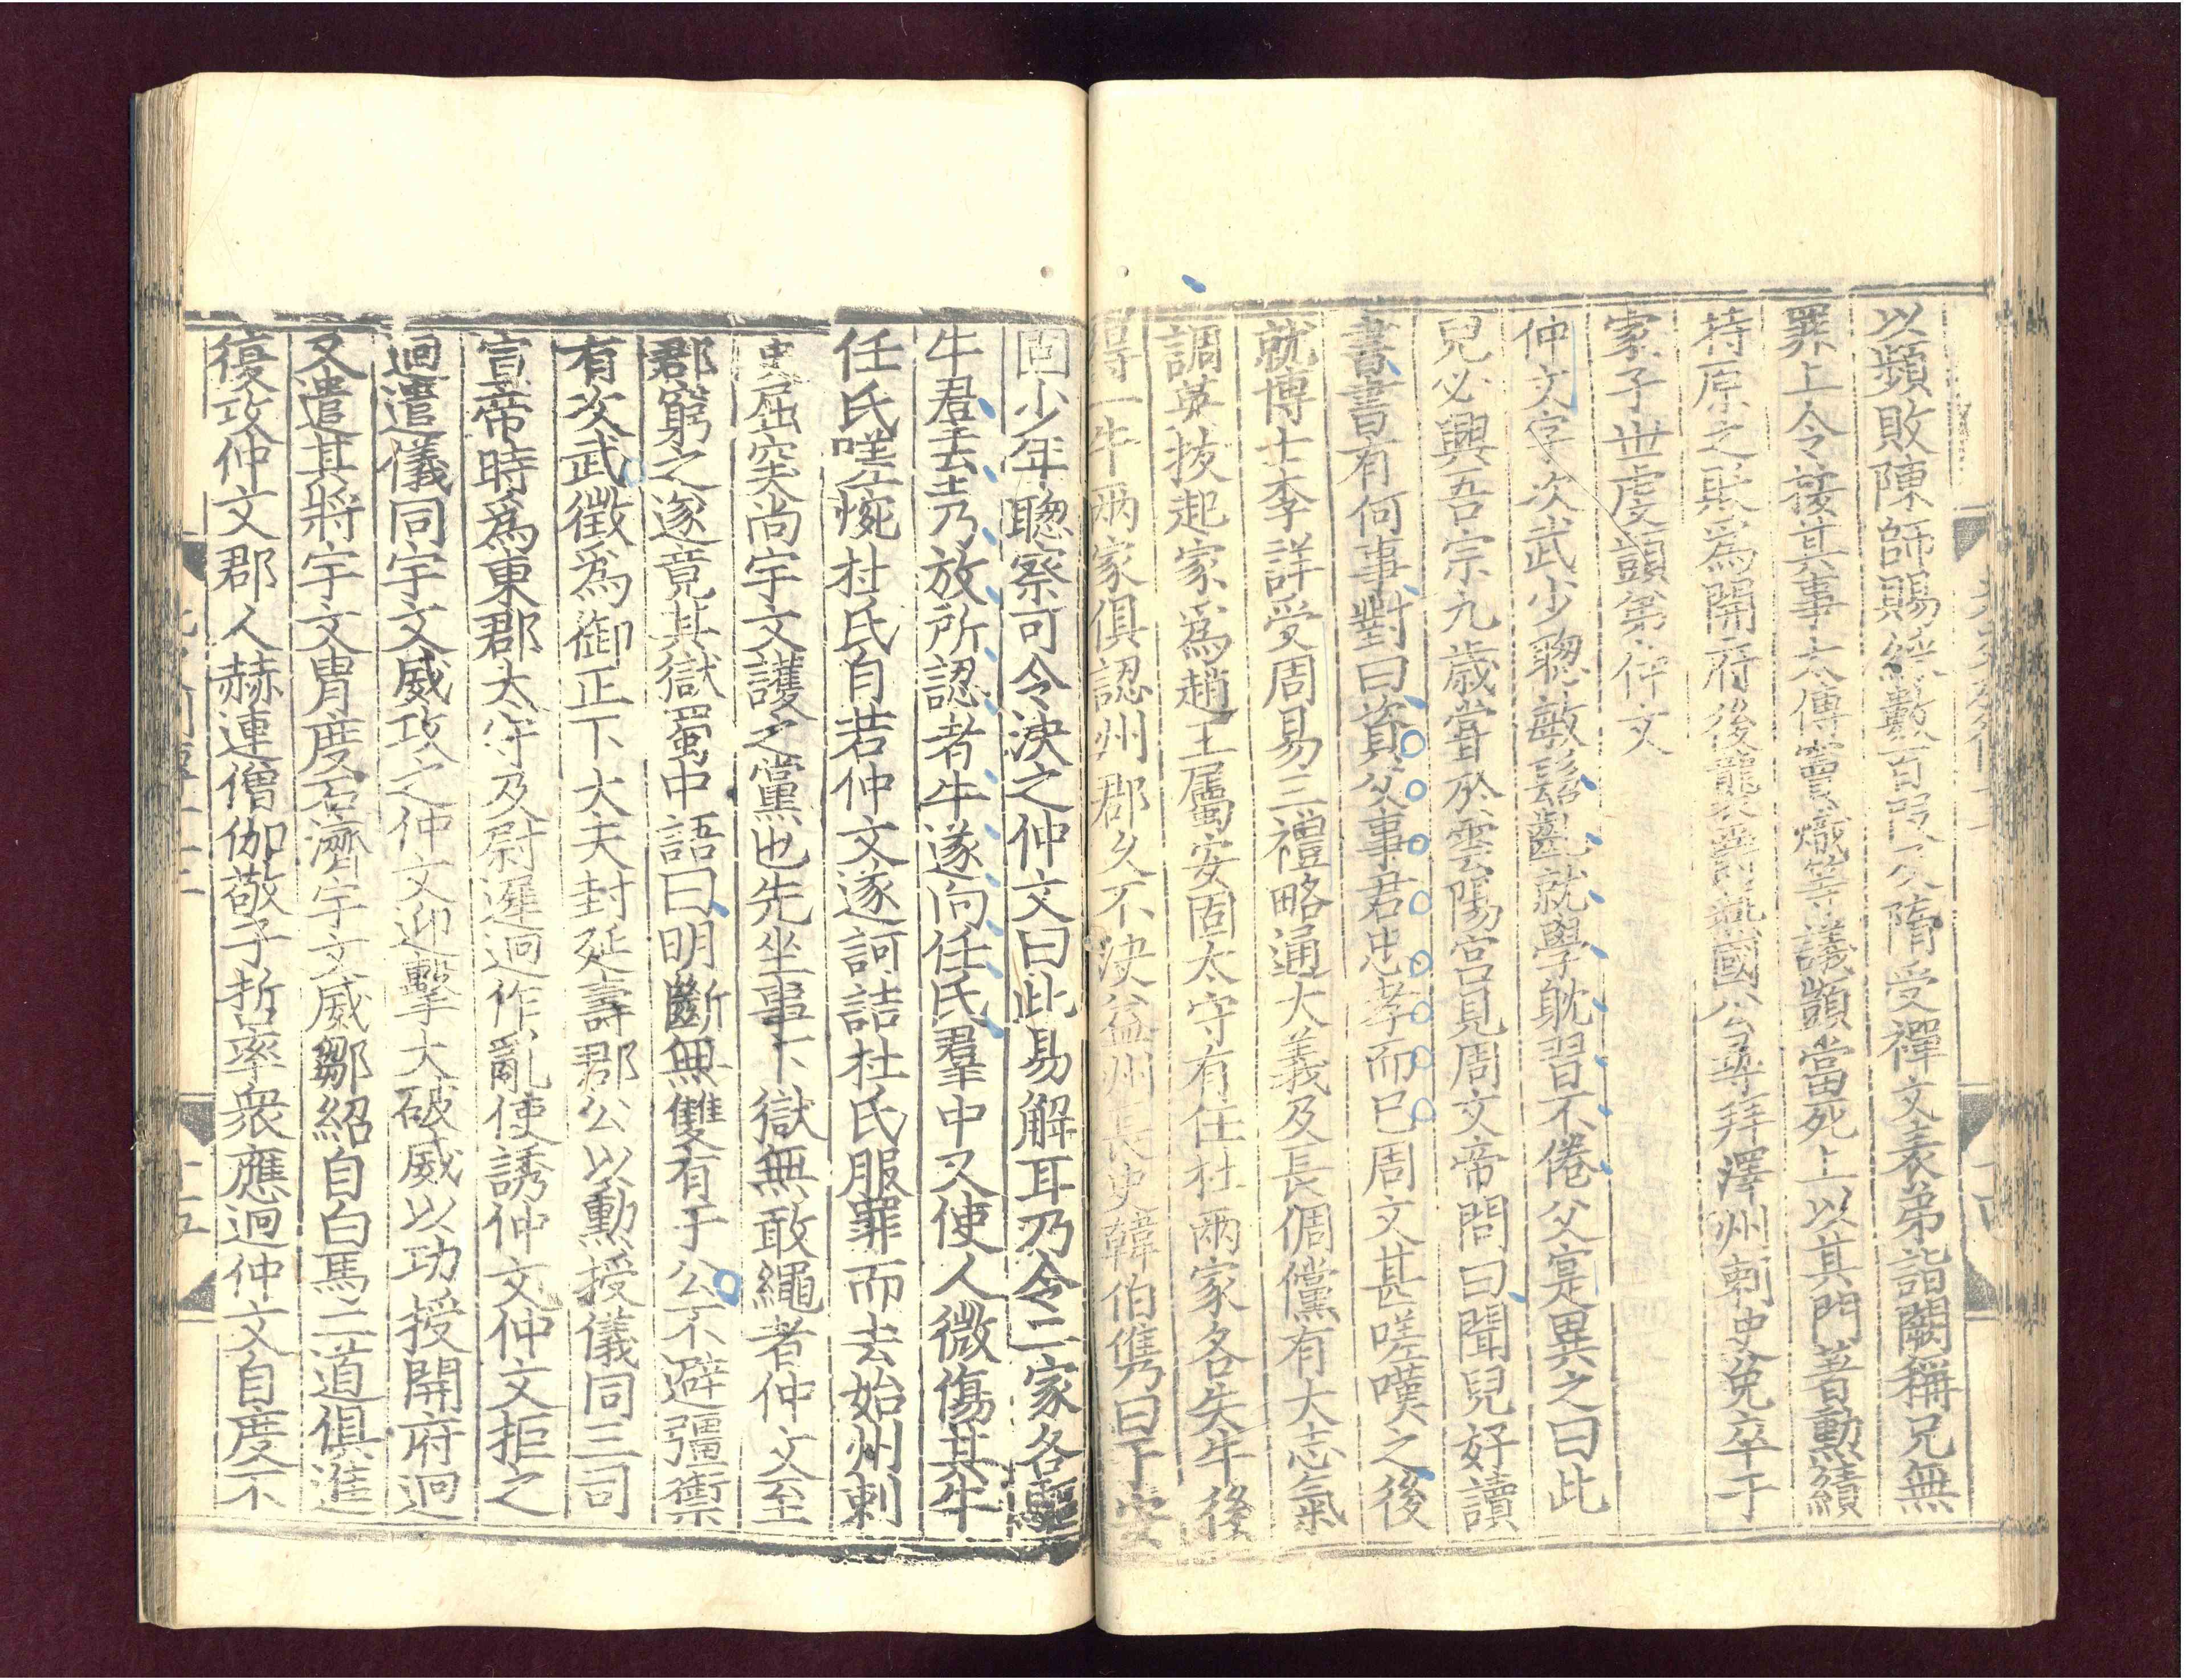 以頻敗陳師賜綵數百段及隋受禪文表弟詣闕稱兄無
罪上令按其事太傅竇熾等議顗當死上以其門著勳績
特原之貶爲開府後襲爵燕國公尋拜澤州刺史免卒于
家子世虔顗弟仲文
仲文字次武少聰敏髫齔就學躭習不倦父寔異之曰此
兒必興吾宗九歲嘗於雲陽宮見周文帝問曰聞兒好讀
書書有何事對曰資父事君忠孝而已周文甚嗟嘆之後
就博士李詳受周易三禮略通大義及長倜儻有大志氣
調英拔起家爲趙王屬安固太守有任杜兩家各失牛後
得一牛兩家俱認州郡久不決益州長史韓伯儁曰于安
固少年聰察可令決之仲文曰此易解耳乃令二家各驅
牛羣去乃放所認者牛遂向任氏羣中又使人微傷其牛
任氏嗟惋杜氏自若仲文遂訶詰杜氏服罪而去始州刺
史屈突尚宇文護之黨也先坐事下獄無敢繩者仲文至
郡窮之遂竟其獄蜀中語曰明斷無雙有于公不避彊禦
有次武徵爲御正下大夫封延壽郡公以勳授儀同三司
宣帝時爲東郡太守及尉遲迥作亂使誘仲文仲文拒之
迥遣儀同宇文威攻之仲文迎擊大破威以功授開府迥
又遣其將宇文胄度石濟宇文威鄒紹自白馬二道俱進
復攻仲文郡人赫連僧伽敬子哲率衆應迥仲文自度不
十五